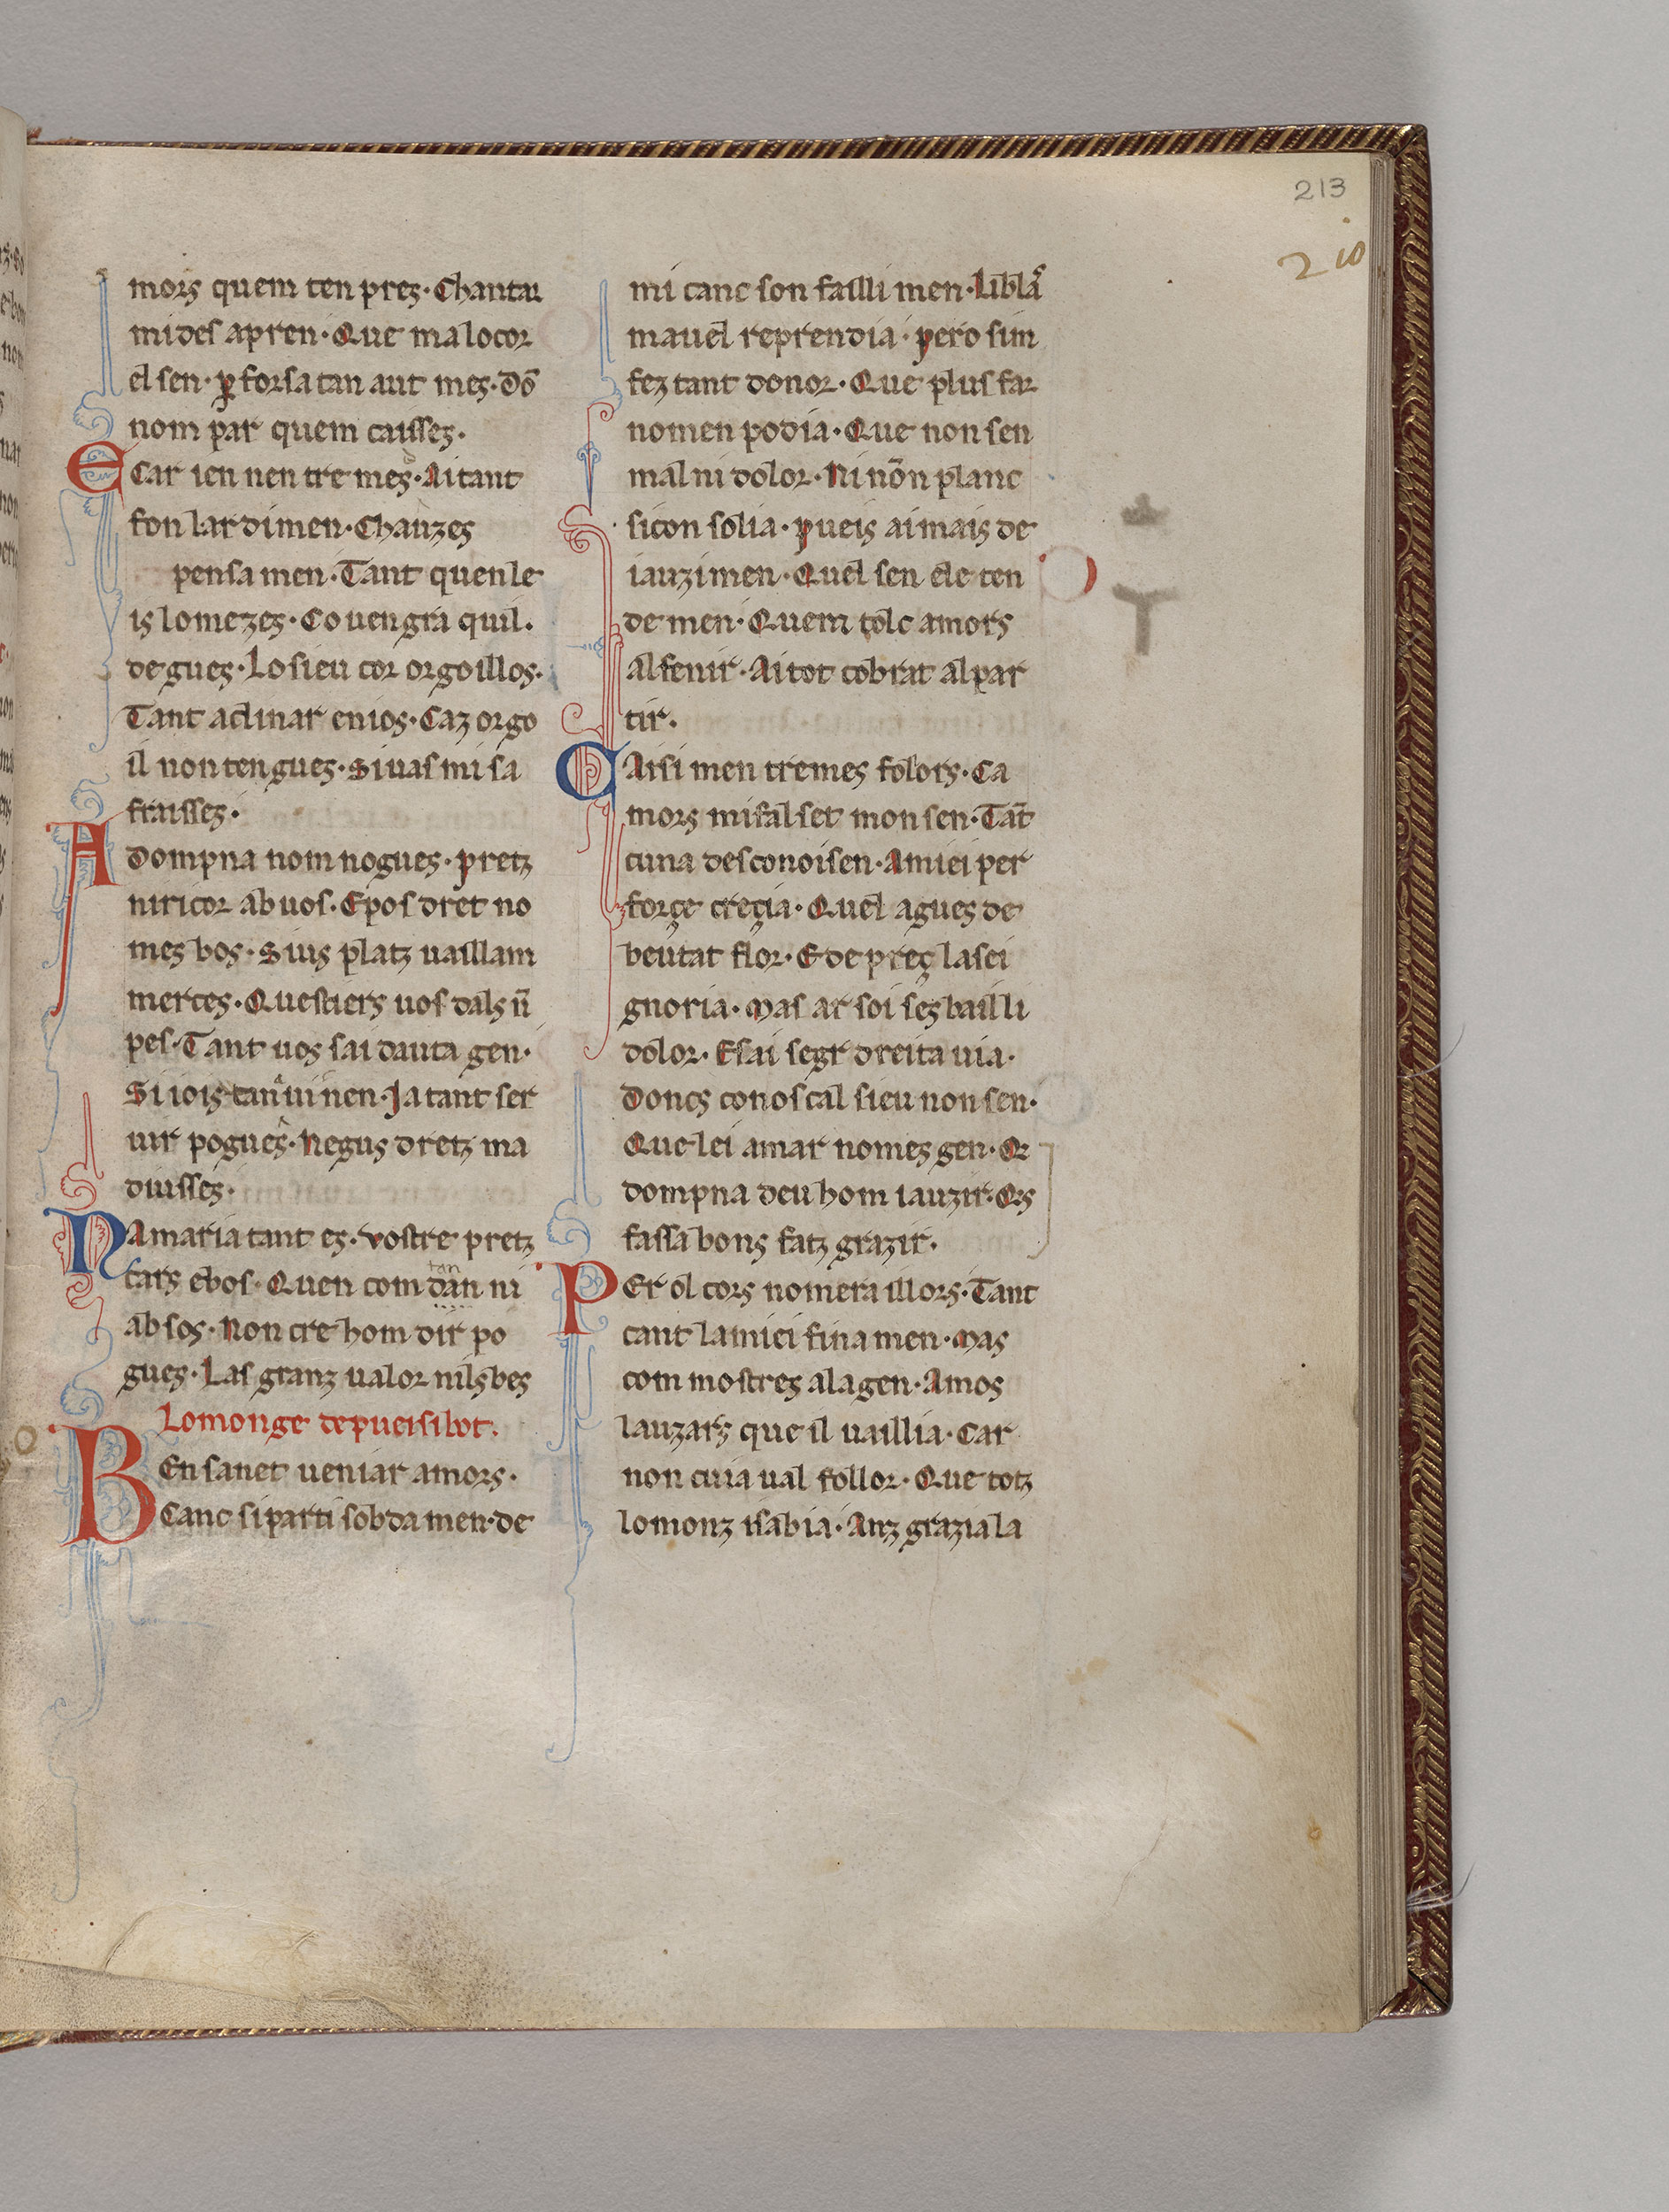 213
210
mors quem ten pres· Chantar
mi des apren· Que ma lo cor
el sen· ꝑ forsa tan aut mes· dō
nom par quem causses·
E Car ien nen tre mes· Ai tant
fon lardimen· Chauzes
pensa men· Tant quen le
is lo mezes· Couengra quil·
degues· Lo sieu cor orgoillos·
Tant aclinar en ios· Caz orgo
il non tengues· Si uas mi sa
fraisses·
A dompna nom nogues· pretz
ni ricor ab uos· E pos dret no
mes bos· Sius platz uaillam
merces· Questiers uos dals ñ
pes· Tant uos sai dauta gen·
Si iois tan ui nen· Ja tant ser
uir pogues· Negus dretz ma
diuisses·
N A maria tant es· Vostre pretz
cars e bos· Quen com dan ni
tan
ab sos· Non cre hom dir po
gues· Las granz ualor nils bes
Lo monge de pueisibot.
B En sanet ueniar amors·
Canc si parti sobdamen· de
mi canc son failli men· Li bla
ma uel reprendia· pero sim
fez tant donor· Que plus far
nomen podia· Que non sen
mal ni dolor· Ni nōn planc
si con solia· pueis ai mais de
iauzimen· Quel sen ele ten
de men· Quem tolc amors
al fenir· Ai tot cobrat al par
tir·
C Aisi men tremes folors· Ca
mors mi falset mon sen· Tāt
cuna desconoisen· Amiei per
forçe creçia· Quel agues de
beutat flor· E de preç la sei
gnoria· Mas ar soi ses bailli
dolor· E sai segr dreita uia·
Doncs conosc al sieu non sen·
Que lei amar nomes gen· Qr
dompna deu hom iauzir· Qrs
fassa bons fatz grazir·
P Er ol cors nomera illors· Tant
cant lamiei fina men· Mas
com mostres a la gen· Amos
lauzars que il uaillia· Car
non cuia ual follor· Que totz
lo monz i sabia· Anz grazia la